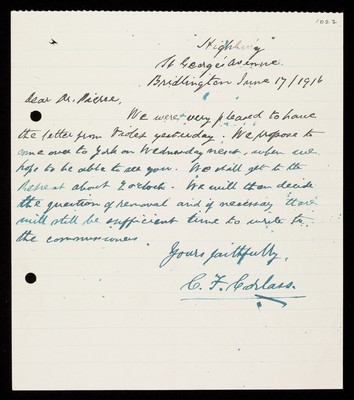 1022
"Highling"
16 George's Avenue.
Bridlington June 17/1916
Dear Dr. Pierce,
We were very pleased to have
the letter from Violet yesterday. We propose to
come over to York on Wednesday next, when we
hope to be able to see you. We shall get to the
Retreat about 2 o'clock. We will then decide
the question of removal and if necessary there
will still be sufficient time to write to
the commissioners.
Yours faithfully,
C. F. Corlass.